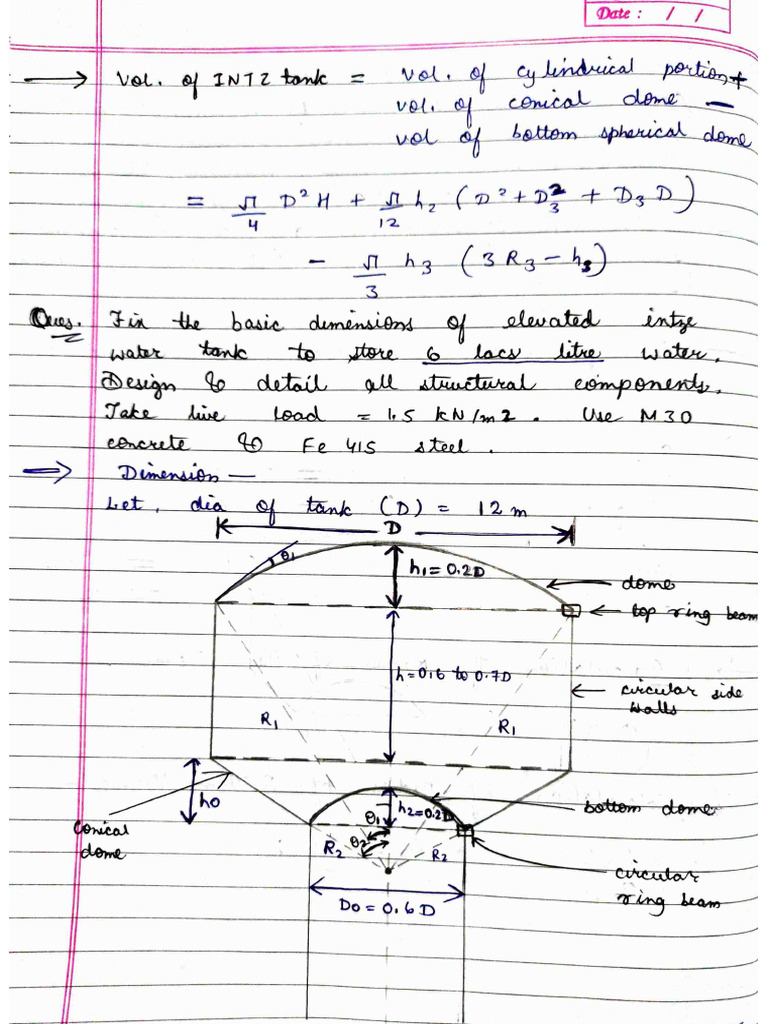 Date : / /
→ Vol. of INTZ tank = vol. of cylindrical portion +
vol. of conical dome —
vol of bottom spherical dome
= π/4 D² H + π/12 h₂ (D² + D₃² + D₃ D)
- π/3 h₃ (3 R₃ - h₃)
Ques. Fix the basic dimensions of elevated intze
water tank to store 6 lacs litre water.
Design & detail all structural components.
Take live load = 1.5 kN/m2. Use M30
concrete & Fe 415 steel.
⇒ Dimension —
Let, dia of tank (D) = 12 m
D
θ₁
h₁ = 0.2D
dome
top ring beam
h = 0.6 to 0.7D
circular side
walls
R₁
R₁
h0
conical
dome
θ₁
h₂ = 0.2D
bottom dome
θ₂
R₂
R₂
circular
ring beam
D0 = 0.6 D